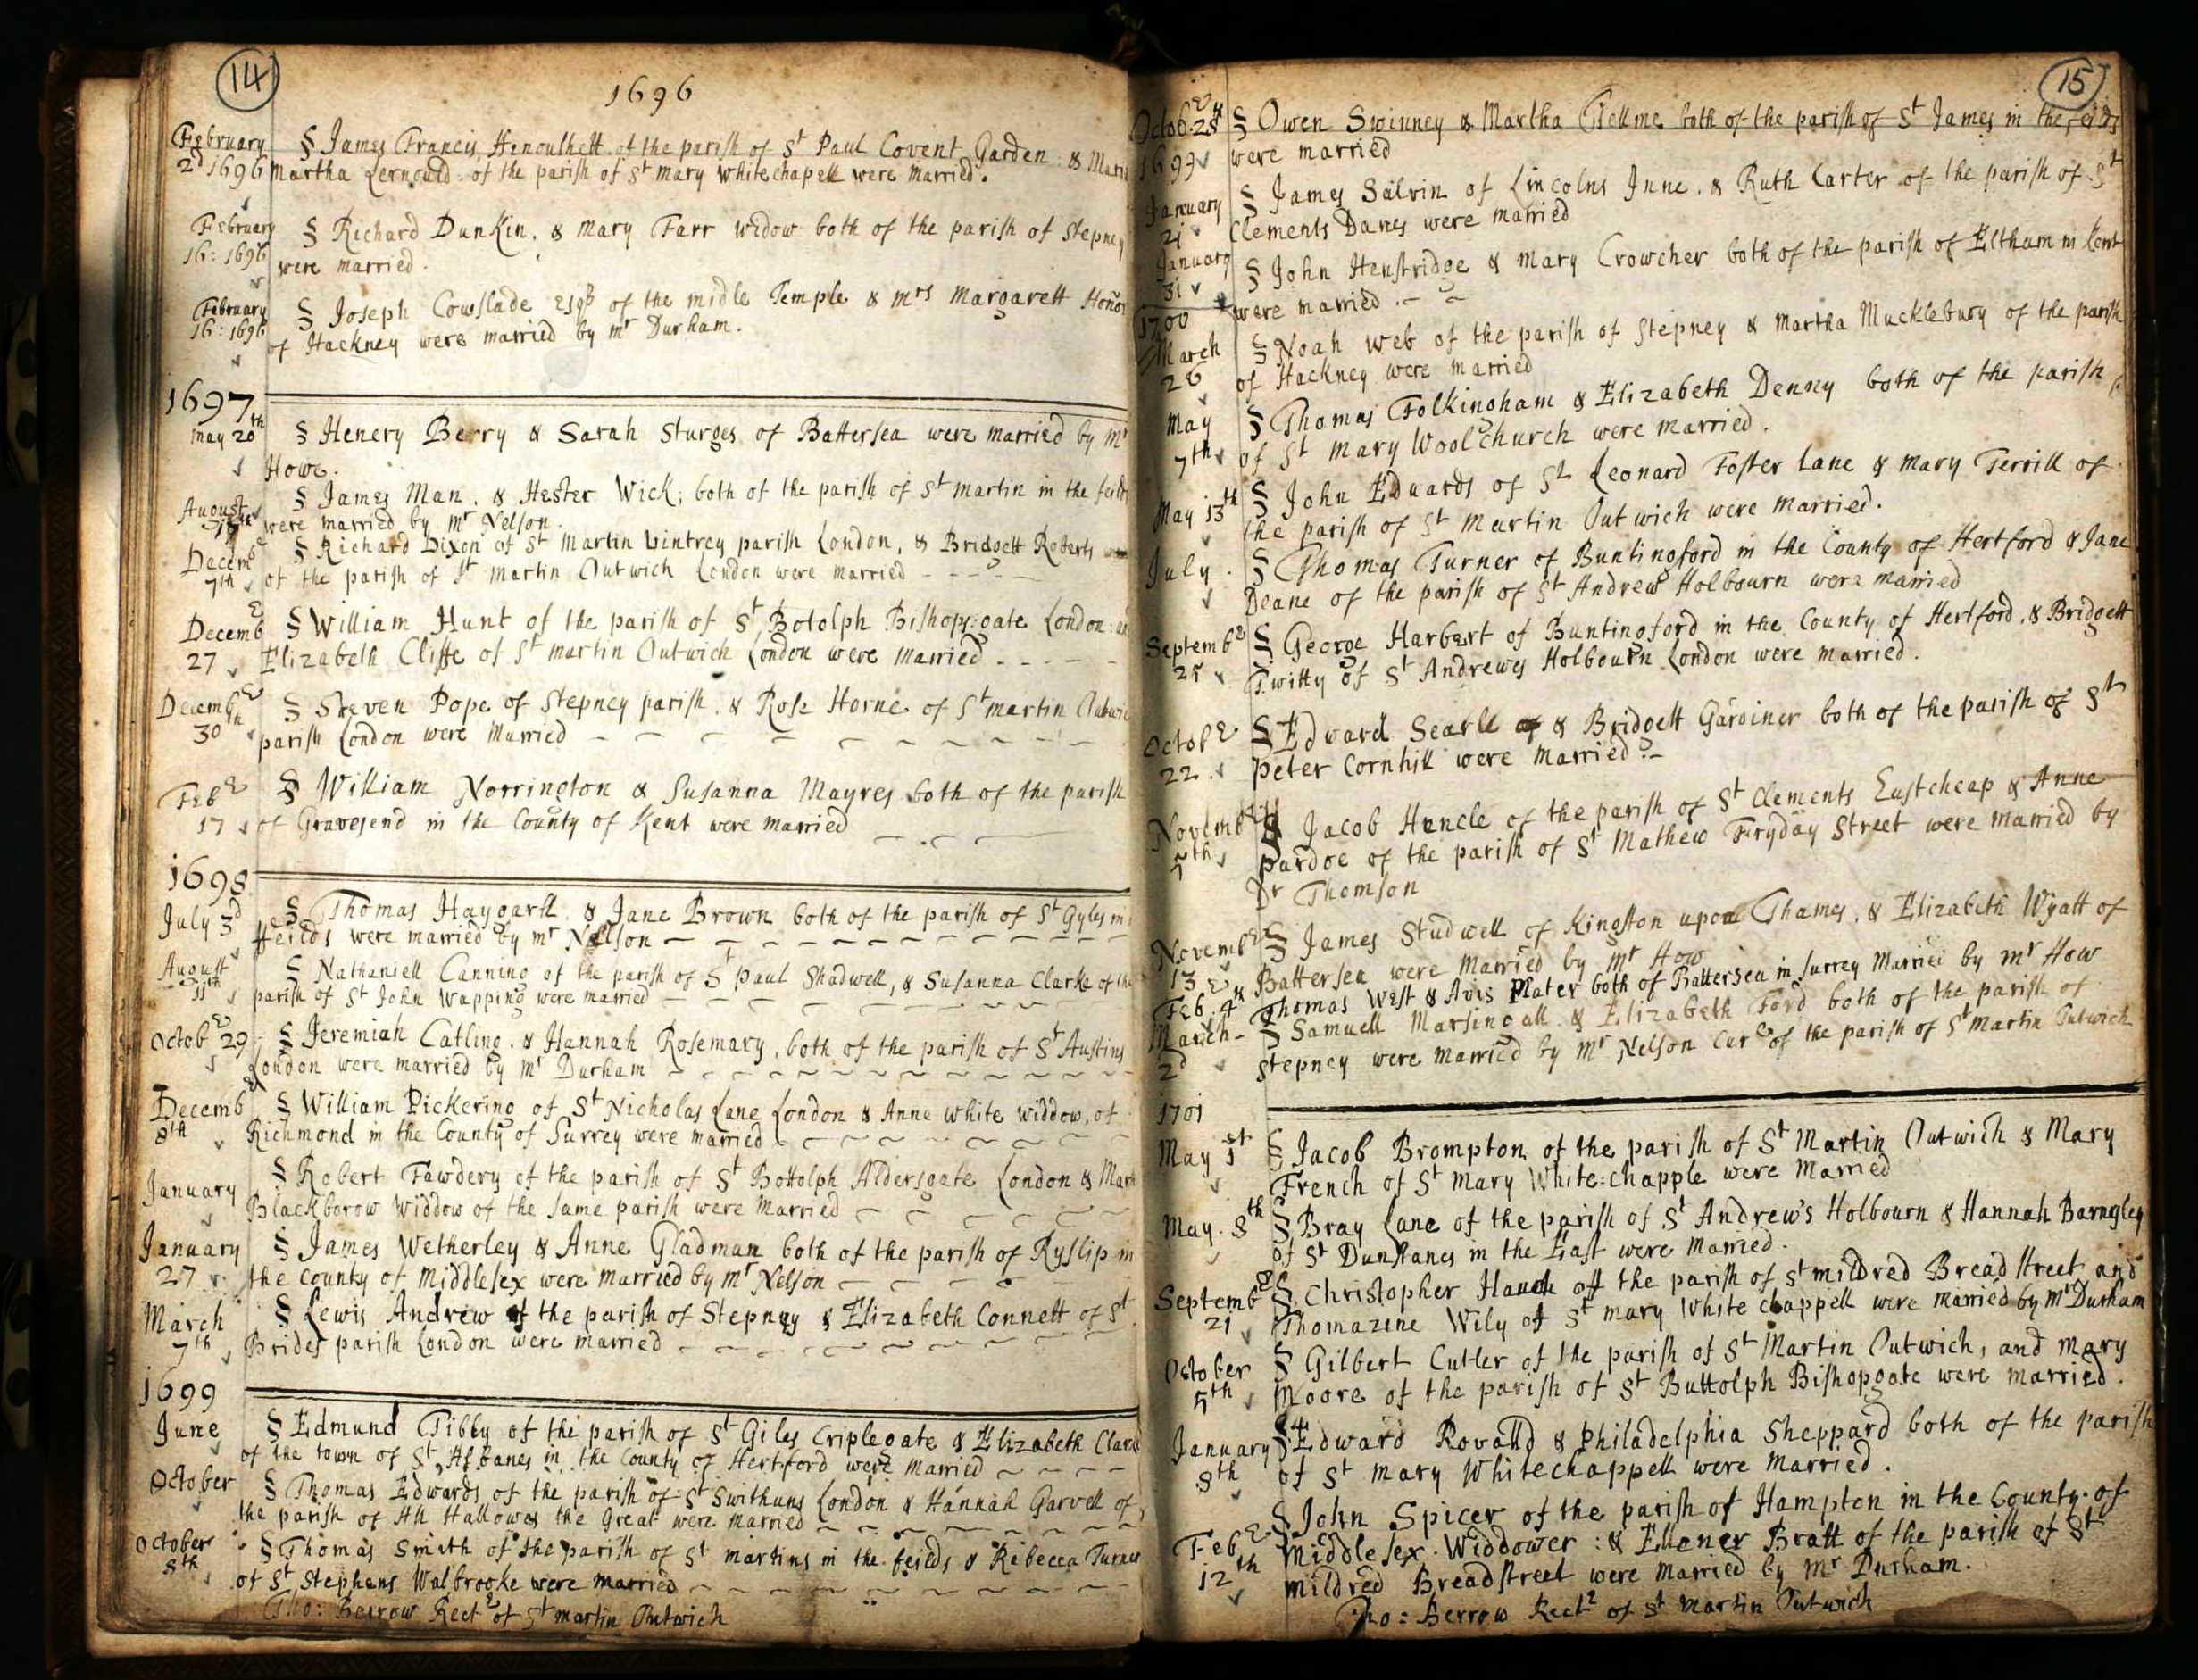 14
1696
February § James Francis Henoulhett of the parish of St Paul Covent Garden : & Mari
2d 1696 Martha Lernould of the parish of St mary whitechapell were Married.
February § Richard Dunkin, & Mary Farr widow both of the parish of Stepney
16: 1696 were married.
February § Joseph Cowslade Esqr of the midle Temple & mrs Margarett Honor
16: 1696 of Hackney were married by mr Durham.
1697
May 20th § Henery Berry & Sarah Sturges of Battersea were married by mr
Howe.
August § James Man, & Hester Wick, both of the parish of St martin in the feilds
were married by mr Nelson.
Decembe § Richard Dixon of St Martin Vintrey parish London, & Bridgett Roberts
7th of the parish of St Martin Outwich London were married
Decembe § William Hunt of the parish of St Botolph Bishopsgate London: &
27 Elizabeth Cliffe of St martin Outwich London were married
Decembe § Steven Pope of Stepney parish, & Rose Horne of St martin Outwic
30th parish London were Married
Febe § William Norrington & Susanna Mayres both of the parish
17 of Gravesend in the County of Kent were married
1698
July 3d § Thomas Haygarll, & Jane Brown both of the parish of St Gyles in
ffeilds were married by mr Nelson
August § Nathaniell Canning of the parish of St Paul Shadwell, & Susanna Clarke of the
11th parish of St John Wapping were married
Octobe 29 § Jeremiah Catling, & Hannah Rosemary, both of the parish of St Austins
London were married by mr Durham
Decembe § William Pickering of St Nicholas Lane London & Anne white widdow, of
8th Richmond in the County of Surrey were married
January § Robert Fawdery of the parish of St Bottolph Aldersgate London & Mary
Blackborow widdow of the same parish were Married
January § James Wetherley & Anne Gladman both of the parish of Ryslip in
27 the County of Middlesex were married by mr Nelson
March § Lewis Andrew of the parish of Stepney & Elizabeth Connett of St
7th Brides parish London were married
1699
June § Edmund Tibby of the parish of St Giles Criplegate & Elizabeth Clark
of the town of St Albanes in the County of Hertford were married
October § Thomas Edwards of the parish of St Swithuns London & Hannah Garvell of
the parish of All Hallowes the Great were married
October § Thomas Smith of the parish of St martins in the feilds & Rebecca Turner
8th of St Stephens Walbrooke were married
Tho: Berrow Recte of St martin Outwich
15
Octobe 28th § Owen Swinney & Martha Tellme both of the parish of St James in the feilds
1699 were married
January § James Salvin of Lincolns Inne, & Ruth Carter of the parish of St
21 Clements Danes were married
January § John Henstridge & Mary Crowcher both of the parish of Eltham in Kent
31 were married
1700
March § Noah Web of the parish of Stepney & Martha Mucklebury of the parish
26 of Hackney were married
May § Thomas Folkingham & Elizabeth Denney both of the parish
7th of St Mary Woolchurch were married.
May 13th § John Edwards of St Leonard Foster Lane & Mary Terrill of
the parish of St Martin Outwich were married.
July § Thomas Turner of Buntingford in the County of Hertford & Jane
Deane of the parish of St Andrew Holbourn were married
Septembe § George Harbert of Buntingford in the County of Hertford, & Bridgett
25 Twitty of St Andrewes Holbourn London were married.
Octobe § Edward Searll & Bridgett Gardiner both of the parish of St
22 Peter Cornhill were married
Novembe § Jacob Huncle of the parish of St Clements Eastcheap & Anne
7th Pardoe of the parish of St Mathew Fryday Street were married by
Dr Thomson
Novembe § James Studwell of Kingston upon Thames, & Elizabeth Wyatt of
13 Battersea were Married by mr How
Febe 4th Thomas West & Avis Plater both of Battersea in Surrey Married by mr How
March § Samuell Marsingall & Elizabeth Ford both of the parish of
2d Stepney were married by mr Nelson Cure of the parish of St Martin Outwich
1701
May 1st § Jacob Brompton of the parish of St Martin Outwich & Mary
French of St Mary White=chapple were Married
May. 8th § Bray Lane of the parish of St Andrew's Holbourn & Hannah Barngley
of St Dunstanes in the East were Married.
Septembe § Christopher Hauch off the parish of St mildred Bread street and
21 Thomazene Wily of St mary White chappell were married by mr Durham
October § Gilbert Cutler of the parish of St Martin Outwich, and mary
5th Moore of the parish of St Buttolph Bishopgate were married.
January § Edward Rovalld & Philadelphia Sheppard both of the parish
8th of St mary Whitechappell were Married.
§ John Spicer of the parish of Hampton in the County of
Febe Middlesex Widdower : & Ellener Bratt of the parish of St
12th mildred Breadstreet were married by Mr Durham.
Tho: Berrow Rectr of St Martin Outwich